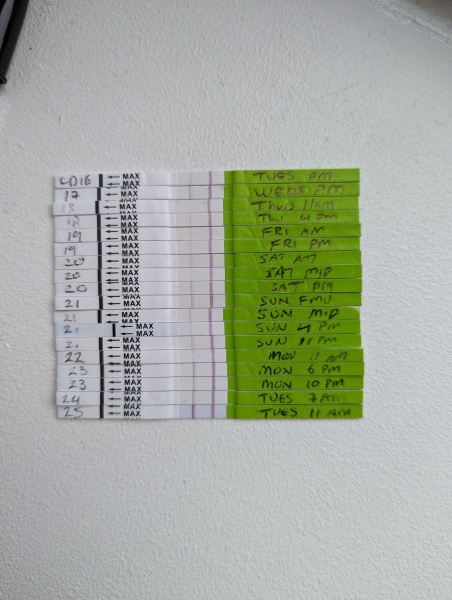 CD16 ← MAX ← MAX TUES PM
17 ← MAX WEDS PM
18 ← MAX ← MAX THUR 11am
18 ← MAX THU 4 PM
19 ← MAX FRI AM
19 ← MAX FRI PM
20 ← MAX SAT AM
20 ← MAX SAT MID
20 ← MAX SAT PM
21 ← MAX SUN FMU
21 ← MAX SUN MID
21 ← MAX ← MAX SUN 4 PM
21 ← MAX SUN PM
22 ← MAX MON 11 AM
23 ← MAX MON 6 PM
23 ← MAX MON 10 PM
24 ← MAX TUES 7 AM
25 ← MAX TUES 11 AM